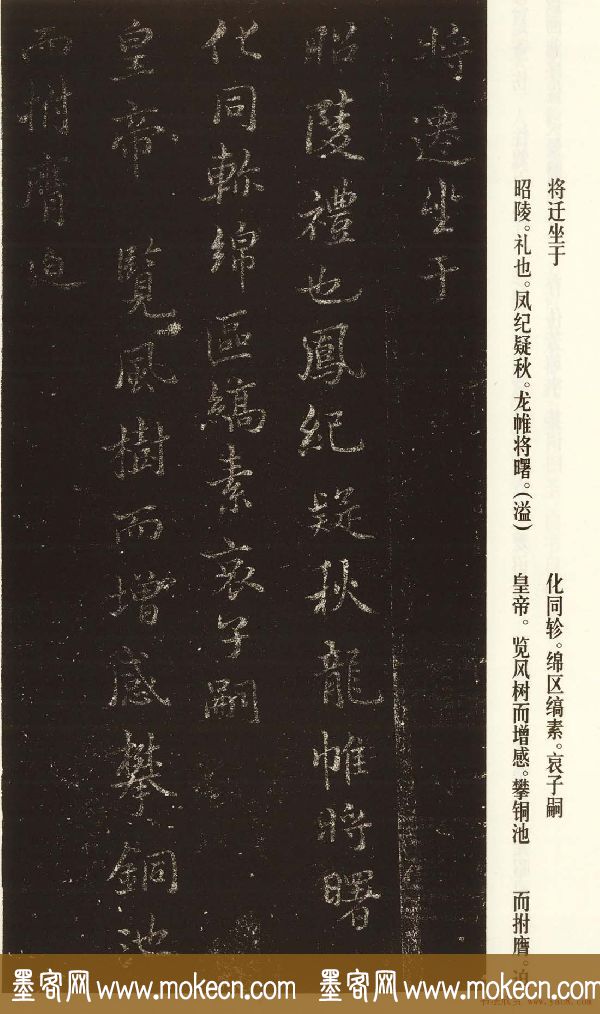 将迁坐于
昭陵。礼也。凤纪疑秋。龙帷将曙。(溢)
化同轸。绵区缟素。哀子嗣
皇帝。览风树而增感。攀铜池 而拊膺。迫
将遷坐于
昭陵禮也鳳紀疑秋龍帷将曙
化同軫綿區縞素哀子嗣
皇帝 覽風樹而增感攀銅池
而拊膺迫
墨客网 www.mokecn.com 墨客网 www.mokecn.com